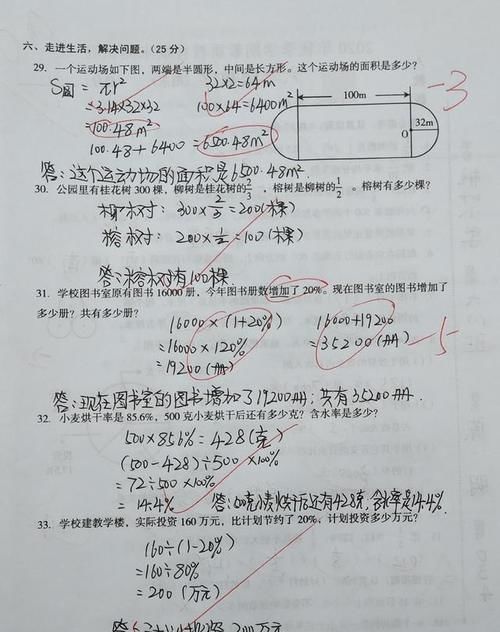 六、走进生活，解决问题。（25分）
29. 一个运动场如下图，两端是半圆形，中间是长方形。这个运动场的面积是多少？
S圆 = πr² 32×2=64m
=3.14×32×32 100×64=6400m²
=100.48m²
100.48+6400=6500.48m²
100m
32m
O
-3
答：这个运动场的面积是6500.48m²
30. 公园里有桂花树 300 棵，柳树是桂花树的2/3，榕树是柳树的1/2。榕树有多少棵？
柳树：300×2/3=200(棵)
榕树：200×1/2=100(棵)
答：榕树有100棵
31. 学校图书室原有图书 16000 册，今年图书册数增加了 20%。现在图书室的图书增加了
多少册？共有多少册？
16000×(1+20%) 16000+19200
=16000×120% =35200(册)
=19200(册)
-5
答：现在图书室的图书增加了19200册，共有35200册.
32. 小麦烘干率是 85.6%，500 克小麦烘干后还有多少克？含水率是多少？
500×85.6%=428(克)
(500-428)÷500×100%
=72÷500×100%
=14.4% 答：500克小麦烘干后还有428克，含水率是14.4%.
33. 学校建教学楼，实际投资 160 万元，比计划节约了 20%。计划投资多少万元？
160÷(1-20%)
=160÷80%
=200(万元)
答：计划投资200万元